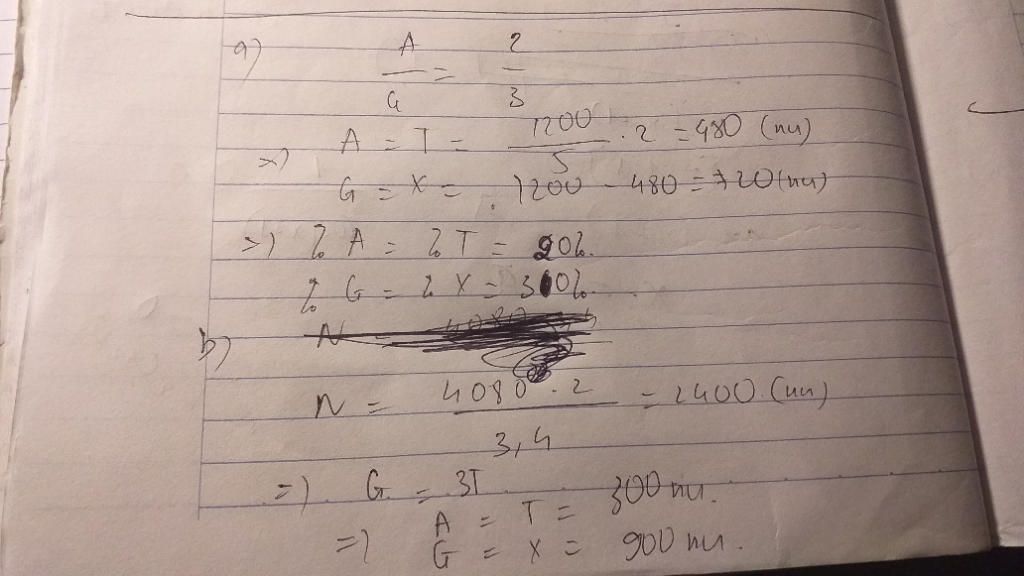 a) A/G = 2/3
=) A = T = 1200/5 . 2 = 480 (nu)
G = X = 1200 - 480 = 720 (nu)
=) % A = % T = 20%.
% G = % X = 30%.
b)
N = 4080 . 2/3,4 = 2400 (nu)
=) G = 3T
=) A = T = 300 nu.
G = X = 900 nu.